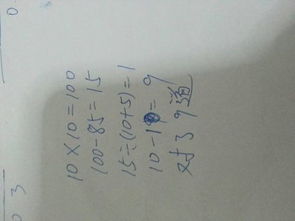 10×10=100
100-85=15
15÷(10+5)=1
10-1=9
对39通